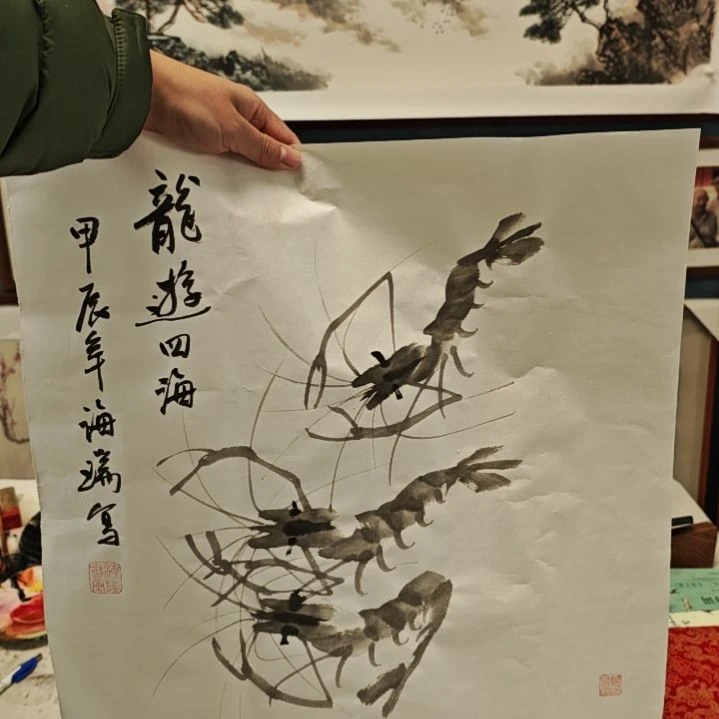 龍遊四海
甲辰年海瑞写